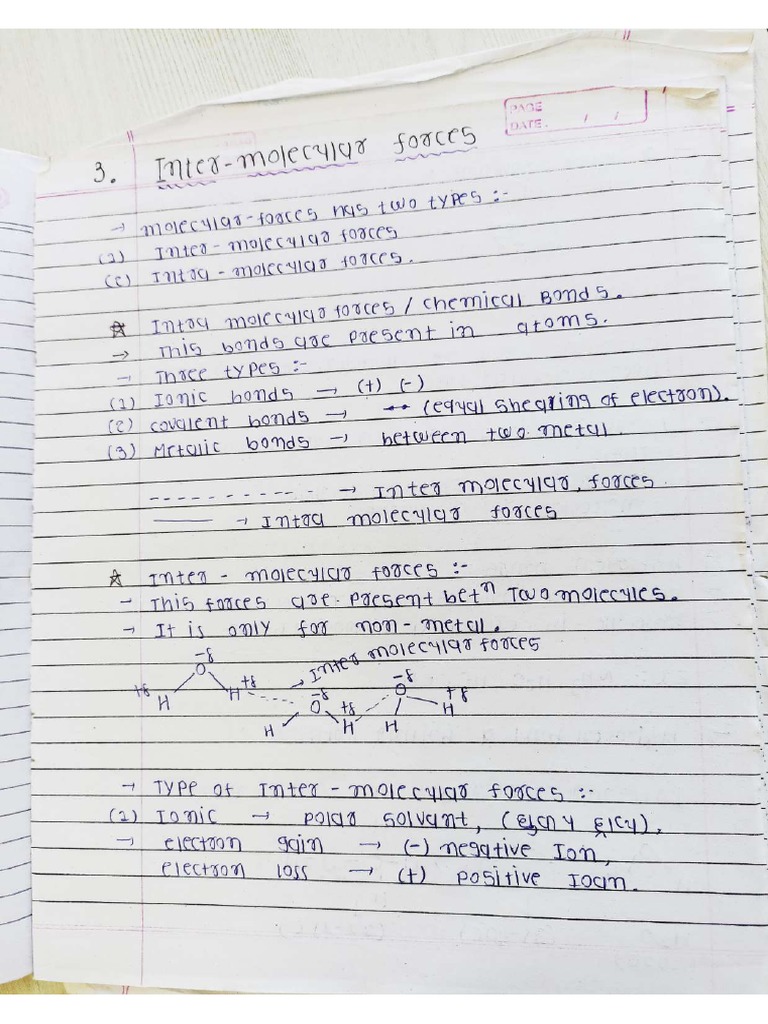 PAGE
DATE. / /
3. Inter-molecular forces
→ molecular-forces has two types :-
(1) Inter-molecular forces
(2) Intra-molecular forces.
☆ Intra molecular forces / chemical Bonds.
→ This bonds are present in atoms.
- Three types :-
(1) Ionic bonds → (+) (-)
(2) covalent bonds → (equal shearing of electron).
(3) Metalic bonds → between two metal
----------- → Inter molecular forces
—— → Intra molecular forces
☆ Inter - molecular forces :-
- This forces are present betⁿ Two molecules.
→ It is only for non-metal.
→ Inter molecular forces
-δ -δ -δ
O O O
+δ +δ +δ +δ
H H H H H H
→ Type of Inter - molecular forces :-
(1) Ionic → polar solvant,
→ electron gain → (-) negative Ion,
electron loss → (+) positive Ioan.